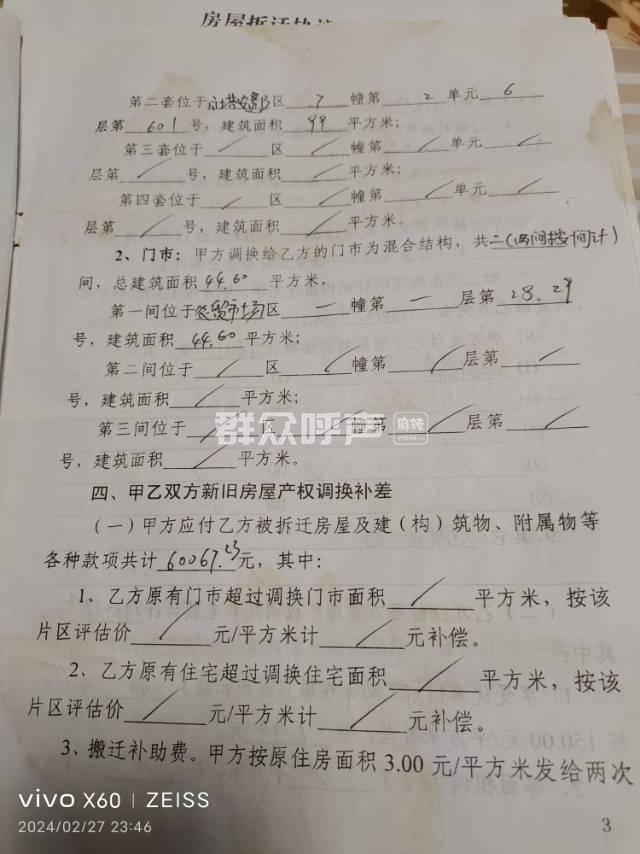 房屋拆迁协议
第二套位于 区 7 幢第 2 单元 6
层第 601 号，建筑面积 99 平方米；
第三套位于 / 区 / 幢第 / 单元 /
层第 / 号，建筑面积 / 平方米；
第四套位于 / 区 / 幢第 / 单元 /
层第 / 号，建筑面积 / 平方米。
2、门市：甲方调换给乙方的门市为混合结构，共二(两间按 间计)
间，总建筑面积 44.60 平方米。
第一间位于农贸市场区 一 幢第 一 层第 28.29
号，建筑面积 44.60 平方米；
第二间位于 / 区 / 幢第 / 层第 /
号，建筑面积 / 平方米；
第三间位于 / 区 / 幢第 / 层第 /
号，建筑面积 / 平方米。
群众呼声 麻辣
四、甲乙双方新旧房屋产权调换补差
（一）甲方应付乙方被拆迁房屋及建（构）筑物、附属物等
各种款项共计 60067.23 元，其中：
1、乙方原有门市超过调换门市面积 / 平方米，按该
片区评估价 / 元/平方米计 / 元补偿。
2、乙方原有住宅超过调换住宅面积 / 平方米，按该
片区评估价 / 元/平方米计 / 元补偿。
3、搬迁补助费。甲方按原住房面积 3.00 元/平方米发给两次
vivo X60 | ZEISS
2024/02/27 23:46
3